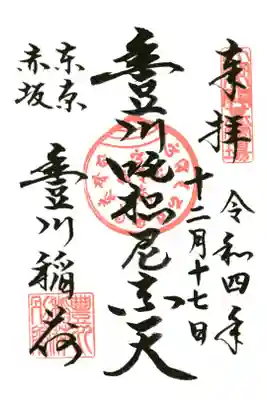 奉拝
令和四年
十二月十七日
豊川吒枳尼真天
東京
赤坂
豊川稲荷